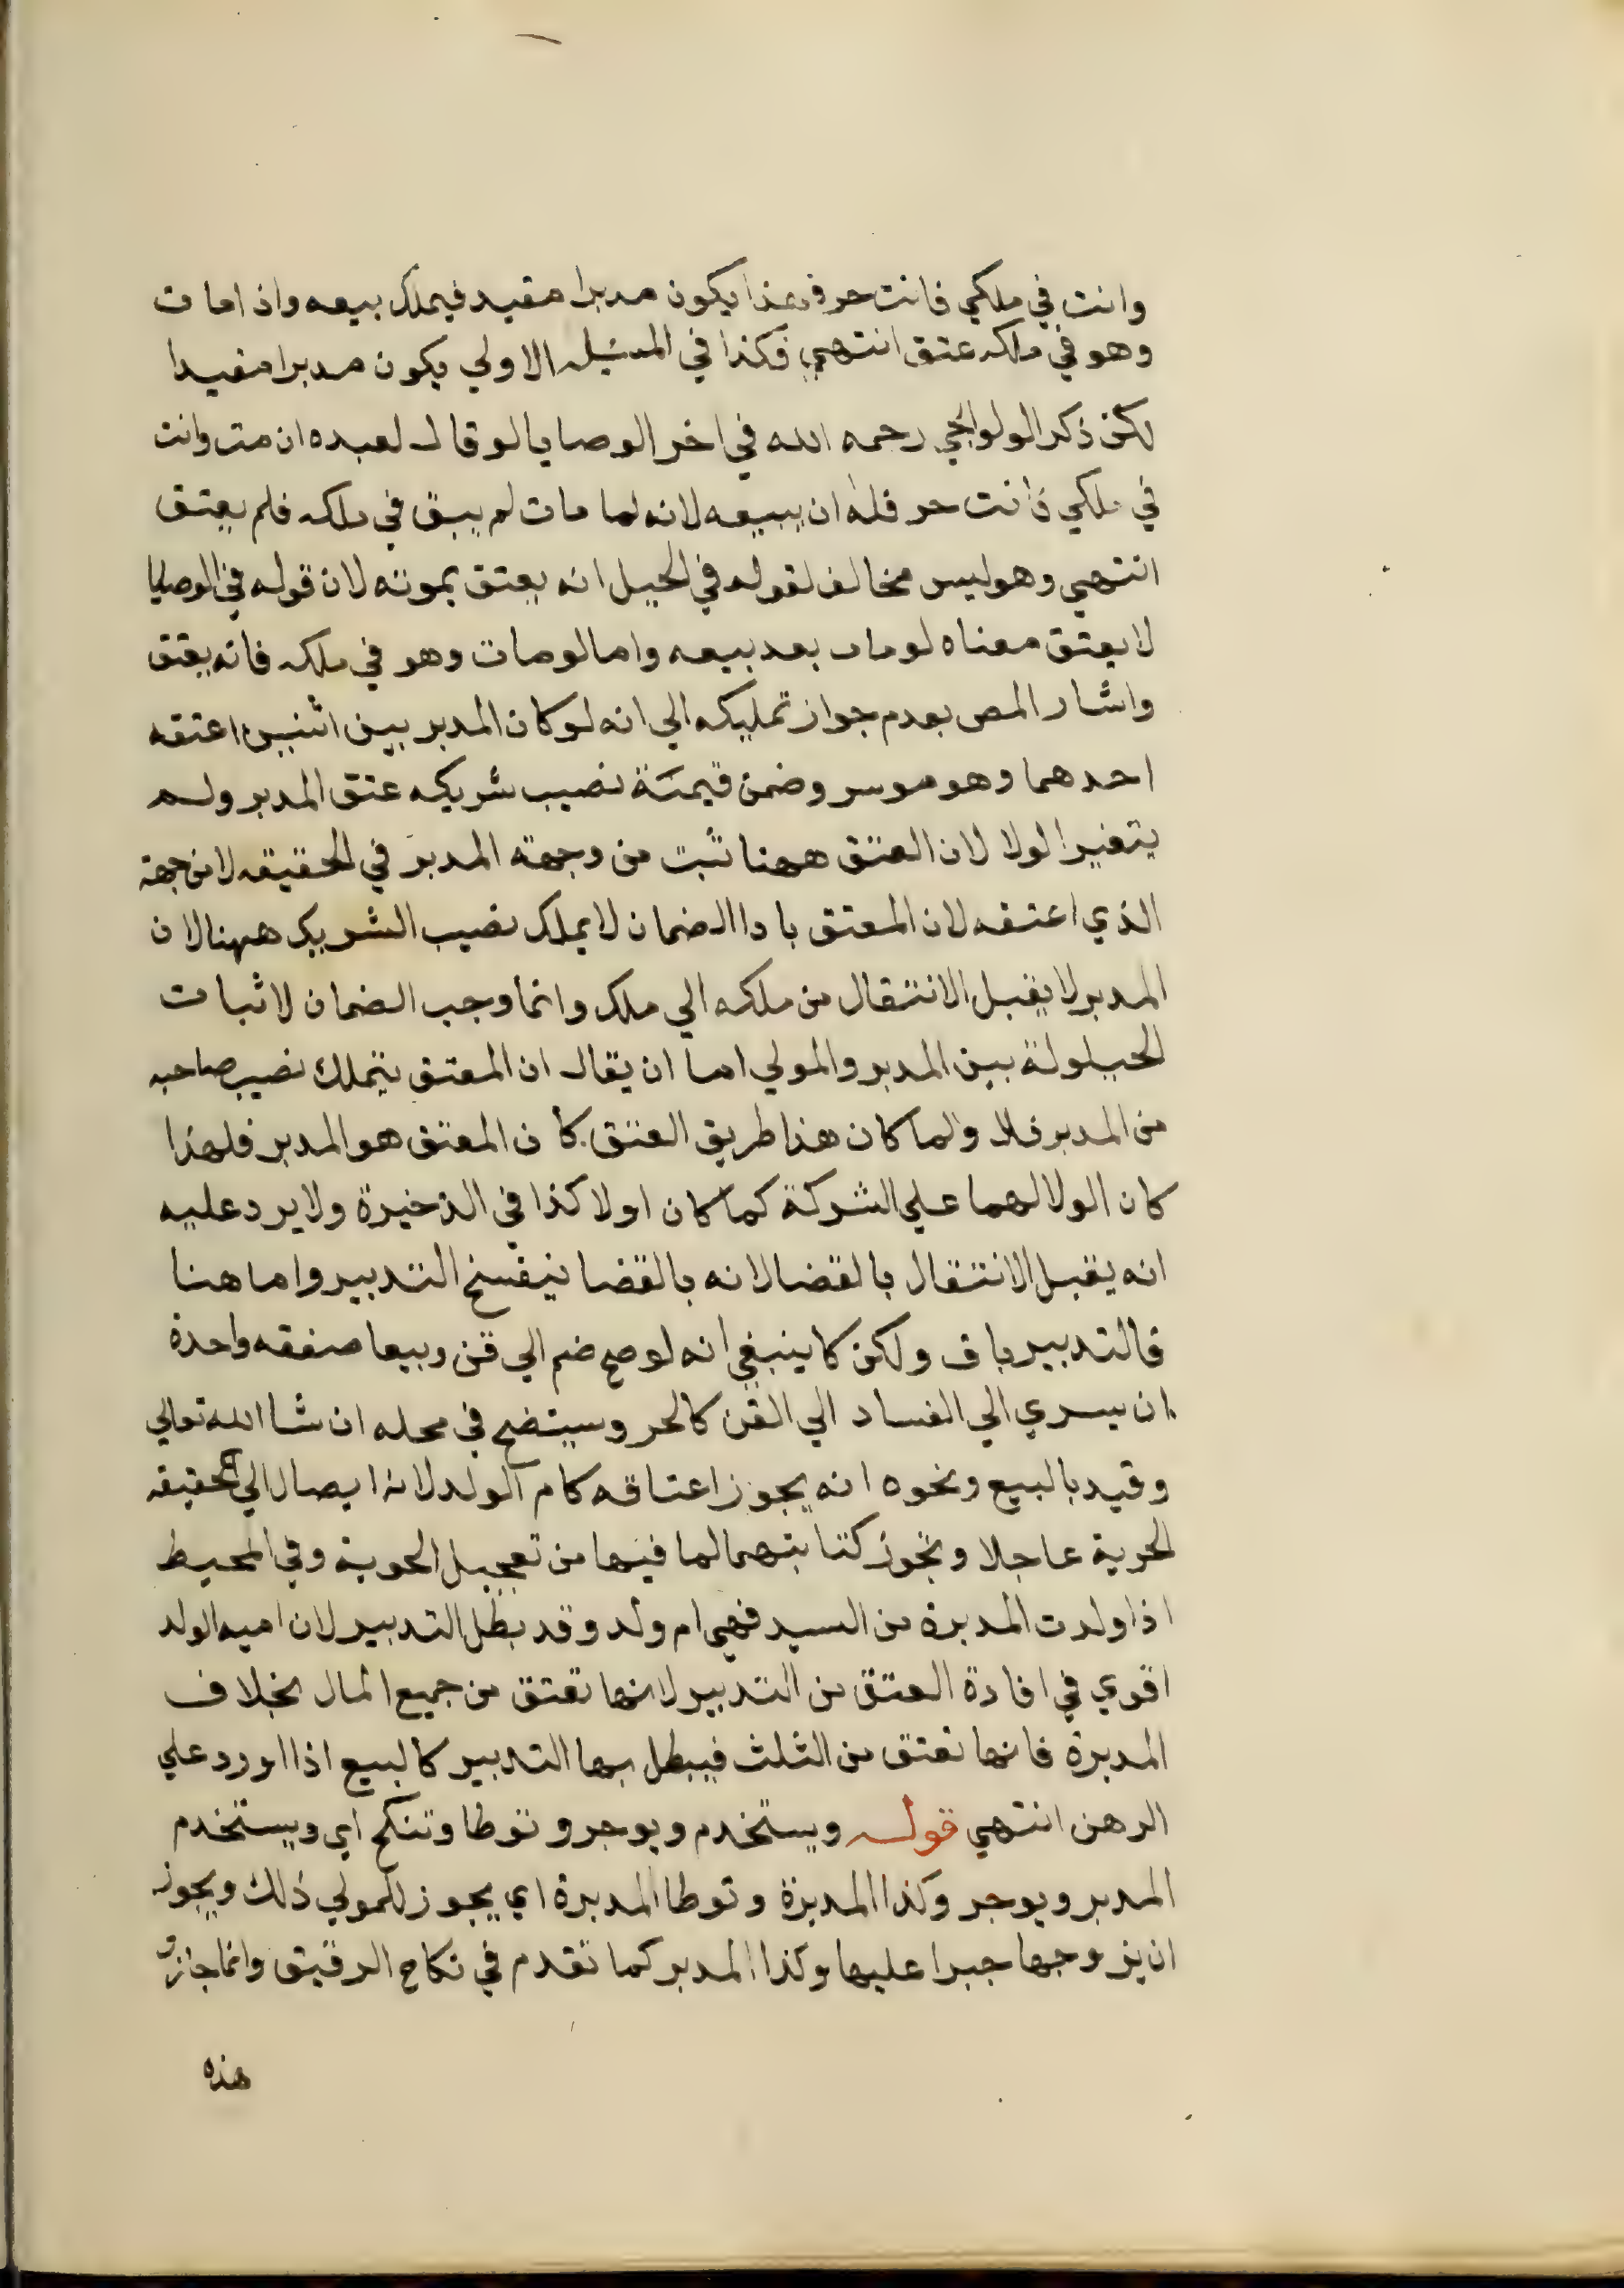 وانت في ملكي فانت حر فهذا يكون مدبرا مقيد فيملك بيعه واذا مات
وهو في ملكه عتق انتهي فكذا في المسئله الاولي يكون مدبرا مقيدا
لكن ذكر الولوالجي رحمه الله في اخر الوصايا لو قال لعبده ان مت وانت
في ملكي فانت حر فله ان يبيعه لانه لما مات لم يبق في ملكه فلم يعتق
انتهي وهو ليس مخالف لقوله في الحيل انه يعتق بموته لان قوله في الوصايا
لا يعتق معناه لو مات بعد بيعه واما لو مات وهو في ملكه فانه يعتق
واشار المص بعدم جواز تمليكه الي انه لو كان المدبر بين اثنين اعتقه
احدهما وهو موسر وضمن قيمة نصيب شريكه عتق المدبر ولم
يتغير الولا لان العتق ههنا ثبت من وجهة المدبر في الحقيقه لا من جهة
الذي اعتقه لان المعتق بادا الضمان لا يملك نصيب الشريك ههنا لان
المدبر لا يقبل الانتقال من ملكه الي ملك وانما وجب الضمان لاثبات
الحيلولة بين المدبر والمولي اما ان يقال ان المعتق يتملك نصيب صاحبه
من المدبر فلا ولما كان هذا طريق العتق كان المعتق هو المدبر فلهذا
كان الولا لهما علي الشركة كما كان اولا كذا في الذخيرة ولا يرد عليه
انه يقبل الانتقال بالقضا لانه بالقضا ينفسخ التدبير واما هنا
فالتدبير باق ولكن كا ينبغي انه لو صح ضم الي قن وبيعا صفقه واحدة
ان يسري الي الفساد الي القن كالحر وسيتضح في محله ان شا الله تعالي
وقيد بالبيع ونحوه انه يجوز اعتاقه كام الولد لانه ايصال الي الحقيقه
الحرية عاجلا وتجوز كتابتهما لما فيها من تعجيل الحرية وفي المحيط
اذا ولدت المدبرة من السيد فهي ام ولد وقد بطل التدبير لان اميه الولد
اقوي في افادة العتق من التدبير لانها تعتق من جميع المال بخلاف
المدبرة فانها تعتق من الثلث فيبطل بها التدبير كالبيع اذا اورد علي
الرهن انتهي قوله ويستخدم ويوجر وتوطا وتنكح اي ويستخدم
المدبر ويوجر وكذا المدبرة وتوطا المدبرة اي يجوز للمولي ذلك ويجوز
ان يزوجها جبرا عليها وكذا المدبر كما تقدم في نكاح الرقيق وانما جازت
هذه